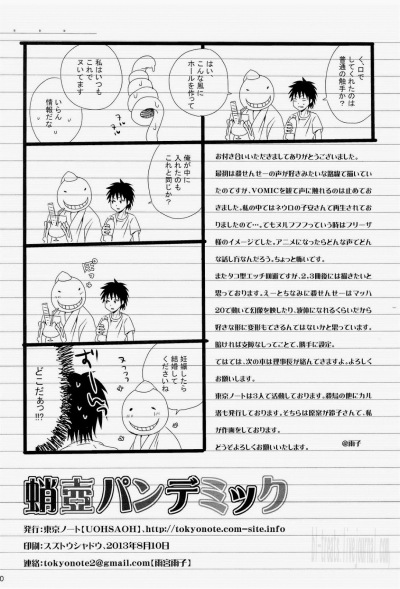 く、口で
してくれたのは
普通の触手か？
はい、
こんな風に
ホールを作って
私はいつも
これで
ヌいてます
いらん
情報だな
俺が中に
入れたのも
これと同じか？
ぽっ
ヌルフフフ
妊娠したら
結婚して
くださいね
どこだぁっ!!?
お付き合いいただきましてありがとうございました。
最初は殺せんせーの声が好きみたいな路線で描いてい
たのですが、VOMICを観て声に触れるのは止めてお
きました。私の中ではネウロの子安さんで再生されてお
りましたので…。でもヌルフフフっている時はフリーザ
様のイメージでした。アニメになったらどんな声でどん
な話し方なんだろう。ちょっと怖いです。
またタコ型エッチ回避ですが、2、3冊後には描きたいと
思っております。えーとちなみに殺せんせーはマッハ
20で動いて幻像を映したり、液体になれるくらいだから
好きな形に変形もできるんではないかと思っています。
暗ければ金障なしってことで、勝手に設定。
てはでは、次の本は理事長が絡んできますよ。よろしく
お願いします。
東京ノートは3人で活動しております。殺烏の他にカル
渚も発行しております。どちらは原案が鈴子さんで、私
が作画をしております。
どうぞよろしくお願いいたします。
@雨子
蛸壺パンデミック
発行:東京ノート【UOHSAOH】.http://tokyonote.com-site.info
印刷:スズトウシャドウ、2013年8月10日
連絡:tokyonote2@gmail.com【雨宮雨子】